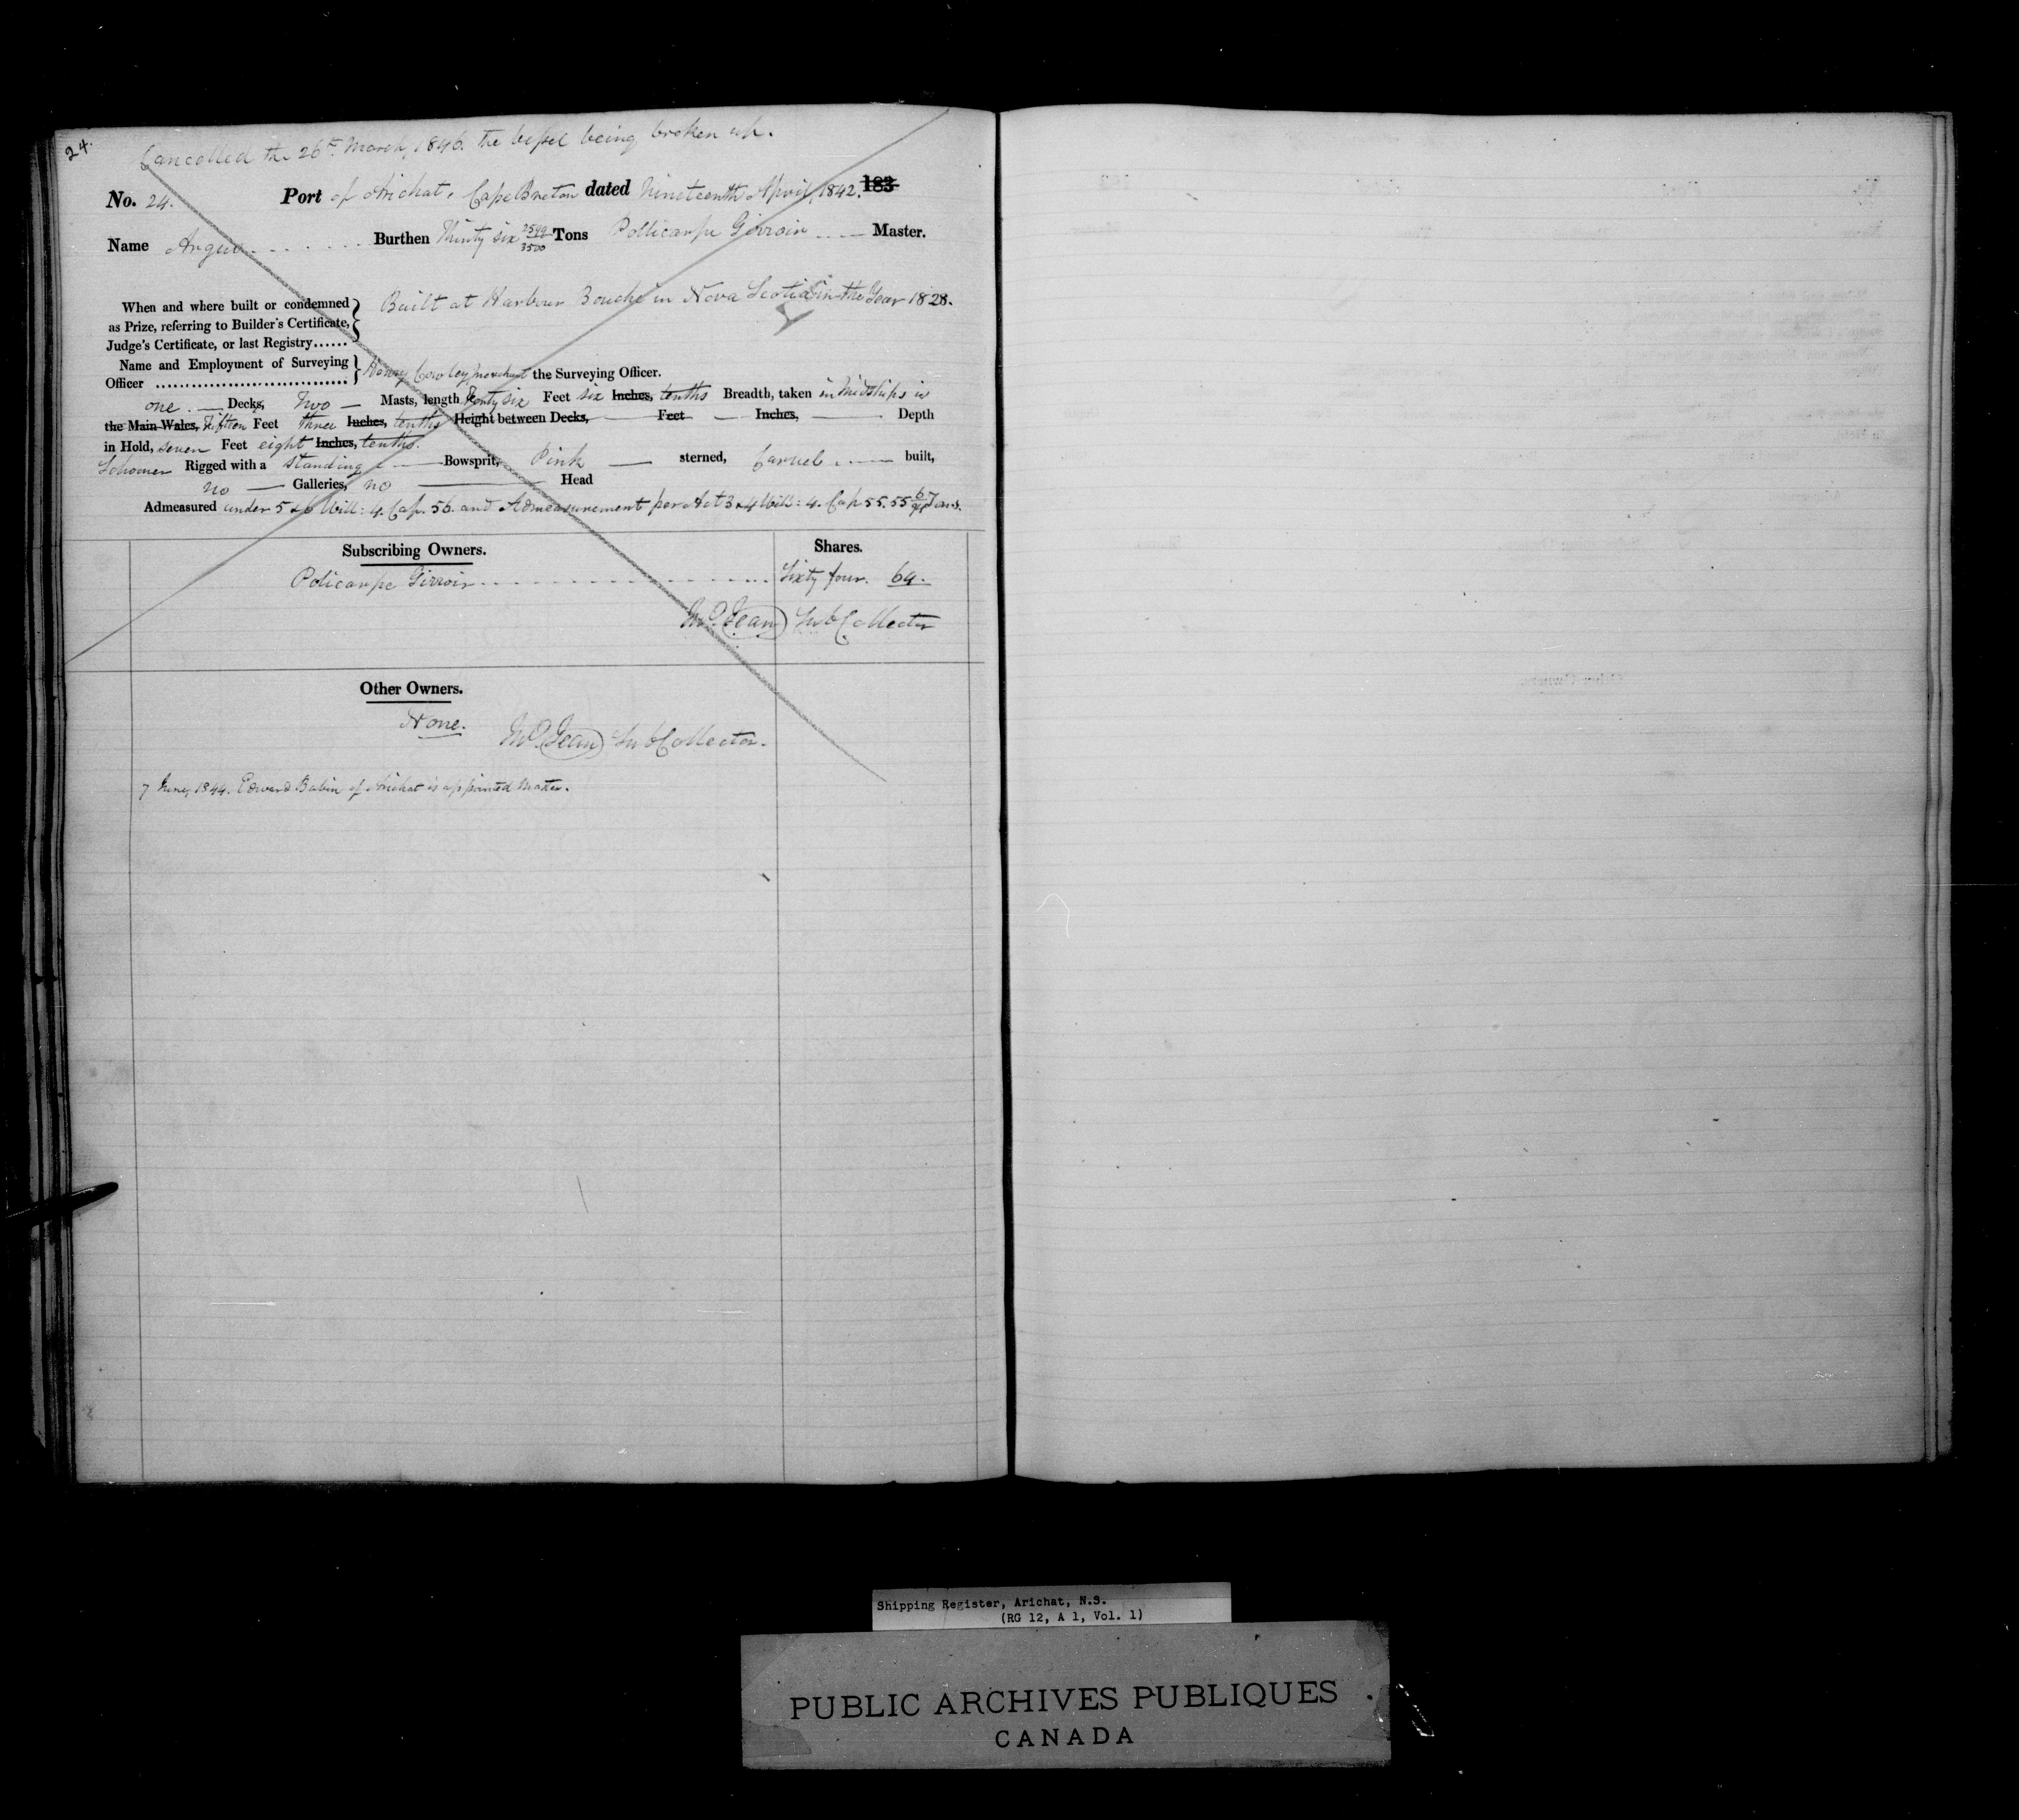 24.
Cancelled the 26th March, 1846. the vessel being broken up.
No. 24. Port of Arichat, Cape Breton dated Nineteenth April, 1842. 183
Name Argus Burthen Thirty six Tons Pollicarpe Girroir Master.
When and where built or condemned as Prize, referring to Builder's Certificate, Judge's Certificate, or last Registry...... Built at Harbour Bouché in Nova Scotia in the Year 1828.
Name and Employment of Surveying Officer ................................ Henry Cowley, merchant the Surveying Officer.
one. Decks, Two Masts, length Forty six Feet six Inches, tenths Breadth, taken in Midships is
the Main Wales, Fifteen Feet three Inches, tenths Height between Decks, Feet Inches, Depth
in Hold, seven Feet eight Inches, tenths.
Schooner Rigged with a standing Bowsprit, Pink sterned, Carvel built,
no Galleries, no Head
Admeasured under 5 & 6 Will: 4. Cap. 56. and Admeasurement per Act 3 & 4 Will: 4. Cap 55. 55 Tons.
Subscribing Owners. Shares.
Policarpe Girroir Sixty four. 64.
Jean Sub Collector
Other Owners.
None.
Jean Sub Collector.
7 June, 1844. Edward Babin of Arichat is appointed Master.
Shipping Register, Arichat, N.S.
(RG 12, A 1, Vol. 1)
PUBLIC ARCHIVES PUBLIQUES
CANADA